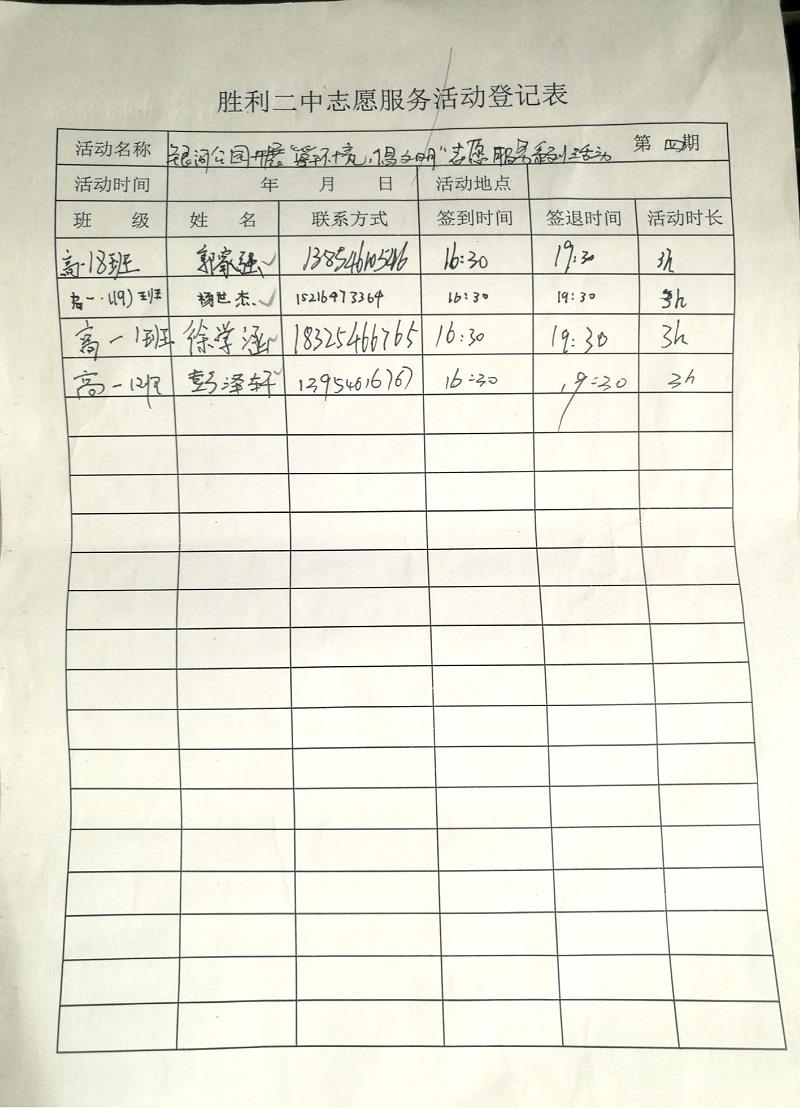 胜利二中志愿服务活动登记表
活动名称 银河公园开展"靓环境,倡文明"志愿服务系列活动 第 四 期
活动时间 年 月 日 活动地点
班 级 姓 名 联系方式 签到时间 签退时间 活动时长
高一18班 郭家强 13854610546 16:30 19:30 3h
高一.(19)班 杨世杰 15216473364 16:30 19:30 3h
高一1班 徐学涵 18325466765 16:30 19:30 3h
高一12班 彭泽轩 13954616767 16:30 19:30 3h